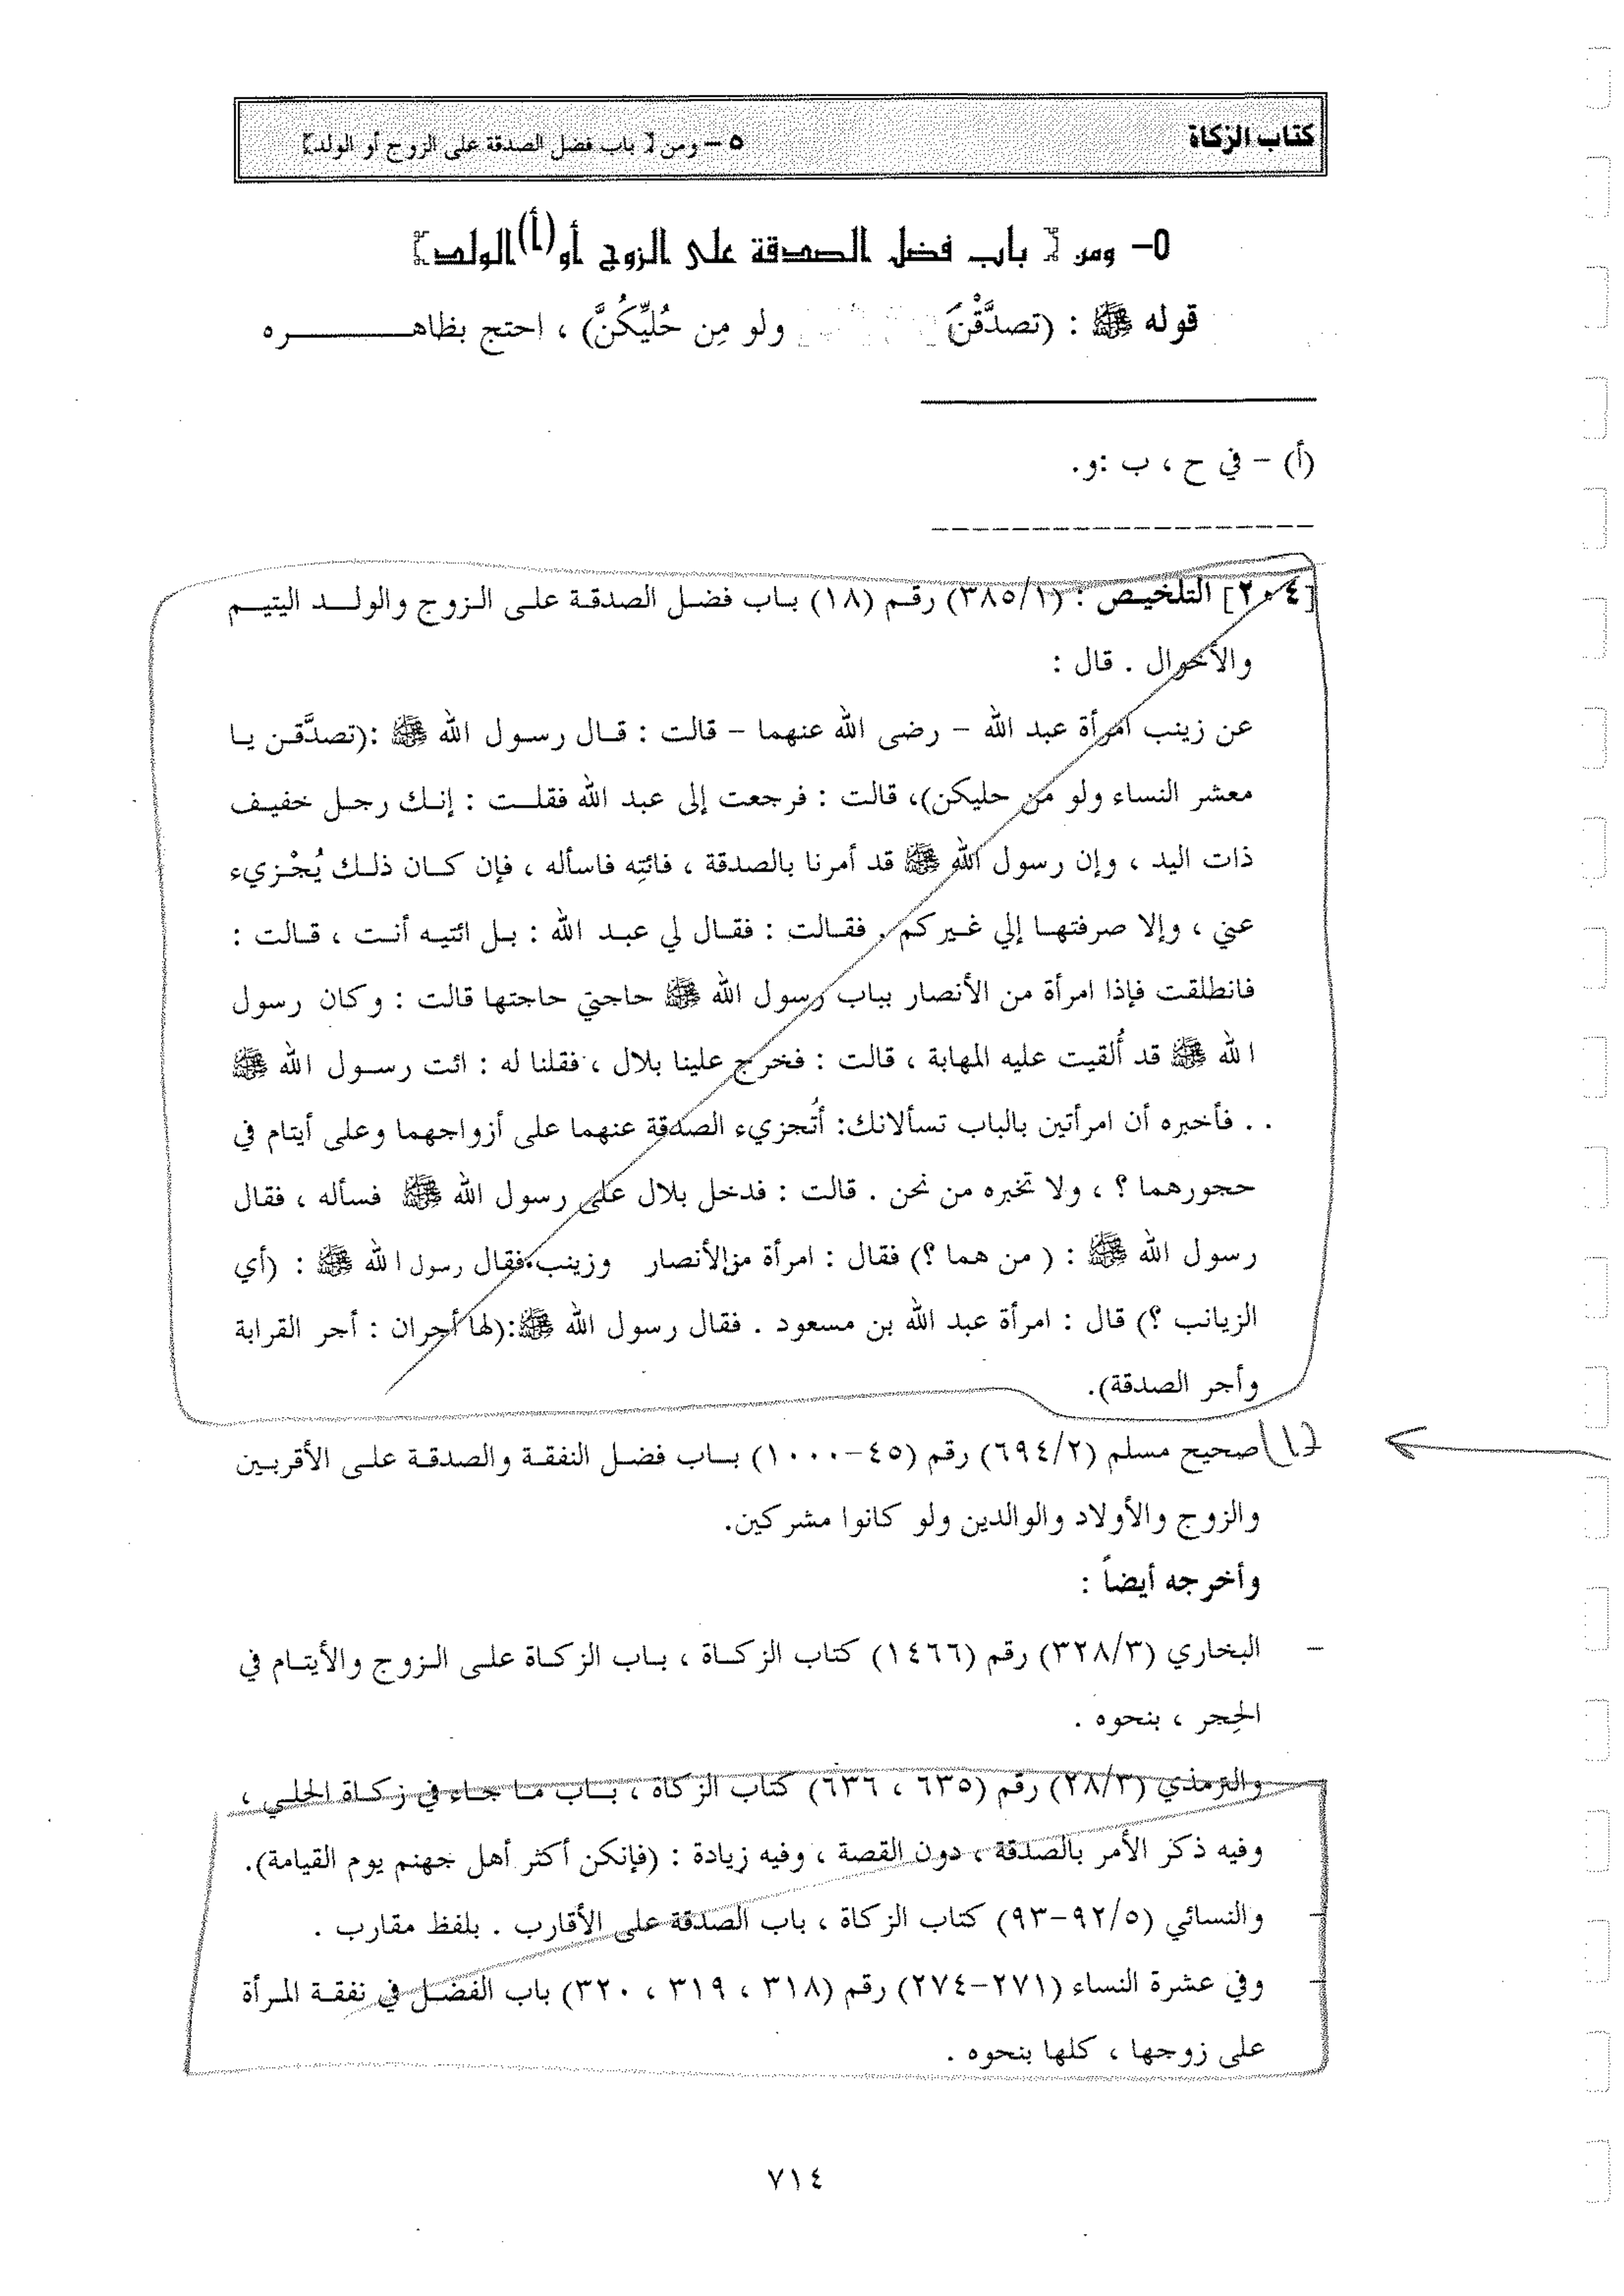 كتاب الزكاة
٥ – ومن [ باب فضل الصدقة على الزوج أو الولد]
٥– ومن [ باب فضل الصدقة على الزوج أو(أ) الولد]
قوله ﷺ : (تصدَّقْنَ ولو مِن حُليِّكُنَّ) ، احتج بظاهـــــره
(أ) – في ح ، ب :و.
[٢٠٤] التلخيص : (٣٨٥/١) رقم (١٨) باب فضل الصدقة على الزوج والولد اليتيم
والأخوال . قال :
عن زينب امرأة عبد الله – رضى الله عنهما – قالت : قال رسول الله ﷺ :(تصدَّقن يا
معشر النساء ولو من حليكن)، قالت : فرجعت إلى عبد الله فقلت : إنك رجل خفيف
ذات اليد ، وإن رسول الله ﷺ قد أمرنا بالصدقة ، فائتِه فاسأله ، فإن كان ذلك يُجْزيء
عني ، وإلا صرفتها إلي غيركم . فقالت : فقال لي عبد الله : بل ائتيه أنت ، قالت :
فانطلقت فإذا امرأة من الأنصار بباب رسول الله ﷺ حاجتي حاجتها قالت : وكان رسول
الله ﷺ قد أُلقيت عليه المهابة ، قالت : فخرج علينا بلال ، فقلنا له : ائت رسول الله ﷺ
. . فأخبره أن امرأتين بالباب تسألانك: أتُجزيء الصدقة عنهما على أزواجهما وعلى أيتام في
حجورهما ؟ ، ولا تخبره من نحن . قالت : فدخل بلال على رسول الله ﷺ فسأله ، فقال
رسول الله ﷺ : ( من هما ؟) فقال : امرأة من الأنصار وزينب، فقال رسول الله ﷺ : (أي
الزيانب ؟) قال : امرأة عبد الله بن مسعود . فقال رسول الله ﷺ:(لها أجران : أجر القرابة
وأجر الصدقة).
(١) صحيح مسلم (٦٩٤/٢) رقم (٤٥–١٠٠٠) باب فضل النفقة والصدقة على الأقربين
والزوج والأولاد والوالدين ولو كانوا مشركين.
وأخرجه أيضاً :
– البخاري (٣٢٨/٣) رقم (١٤٦٦) كتاب الزكاة ، باب الزكاة على الزوج والأيتام في
الحِجر ، بنحوه .
والترمذي (٢٨/٣) رقم (٦٣٥ ، ٦٣٦) كتاب الزكاة ، باب ما جاء في زكاة الحلي ،
وفيه ذكر الأمر بالصدقة ، دون القصة ، وفيه زيادة : (فإنكن أكثر أهل جهنم يوم القيامة).
– والنسائي (٩٢/٥–٩٣) كتاب الزكاة ، باب الصدقة على الأقارب . بلفظ مقارب .
– وفي عشرة النساء (٢٧١–٢٧٤) رقم (٣١٨ ، ٣١٩ ، ٣٢٠) باب الفضل في نفقة المرأة
على زوجها ، كلها بنحوه .
٧١٤